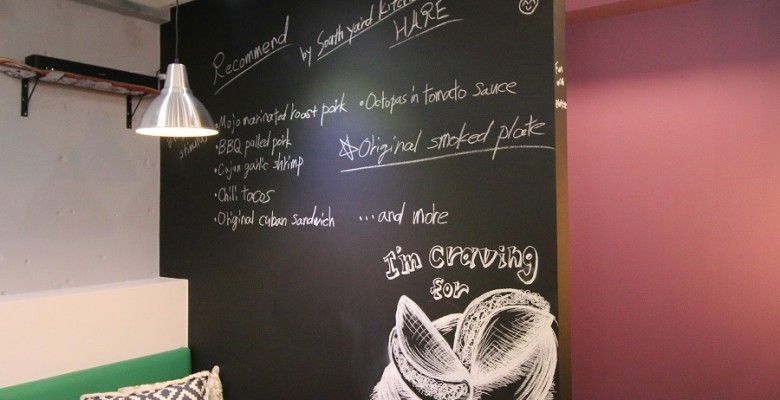 Recommend
by South yard Kitchen
HARE
• Mojo marinated roast pork
• BBQ pulled pork
• Cajun garlic shrimp
• Chili tacos
• Original cuban sandwich
• Octopas in tomato sauce
☆Original smoked plate
...and more
I'm craving
for